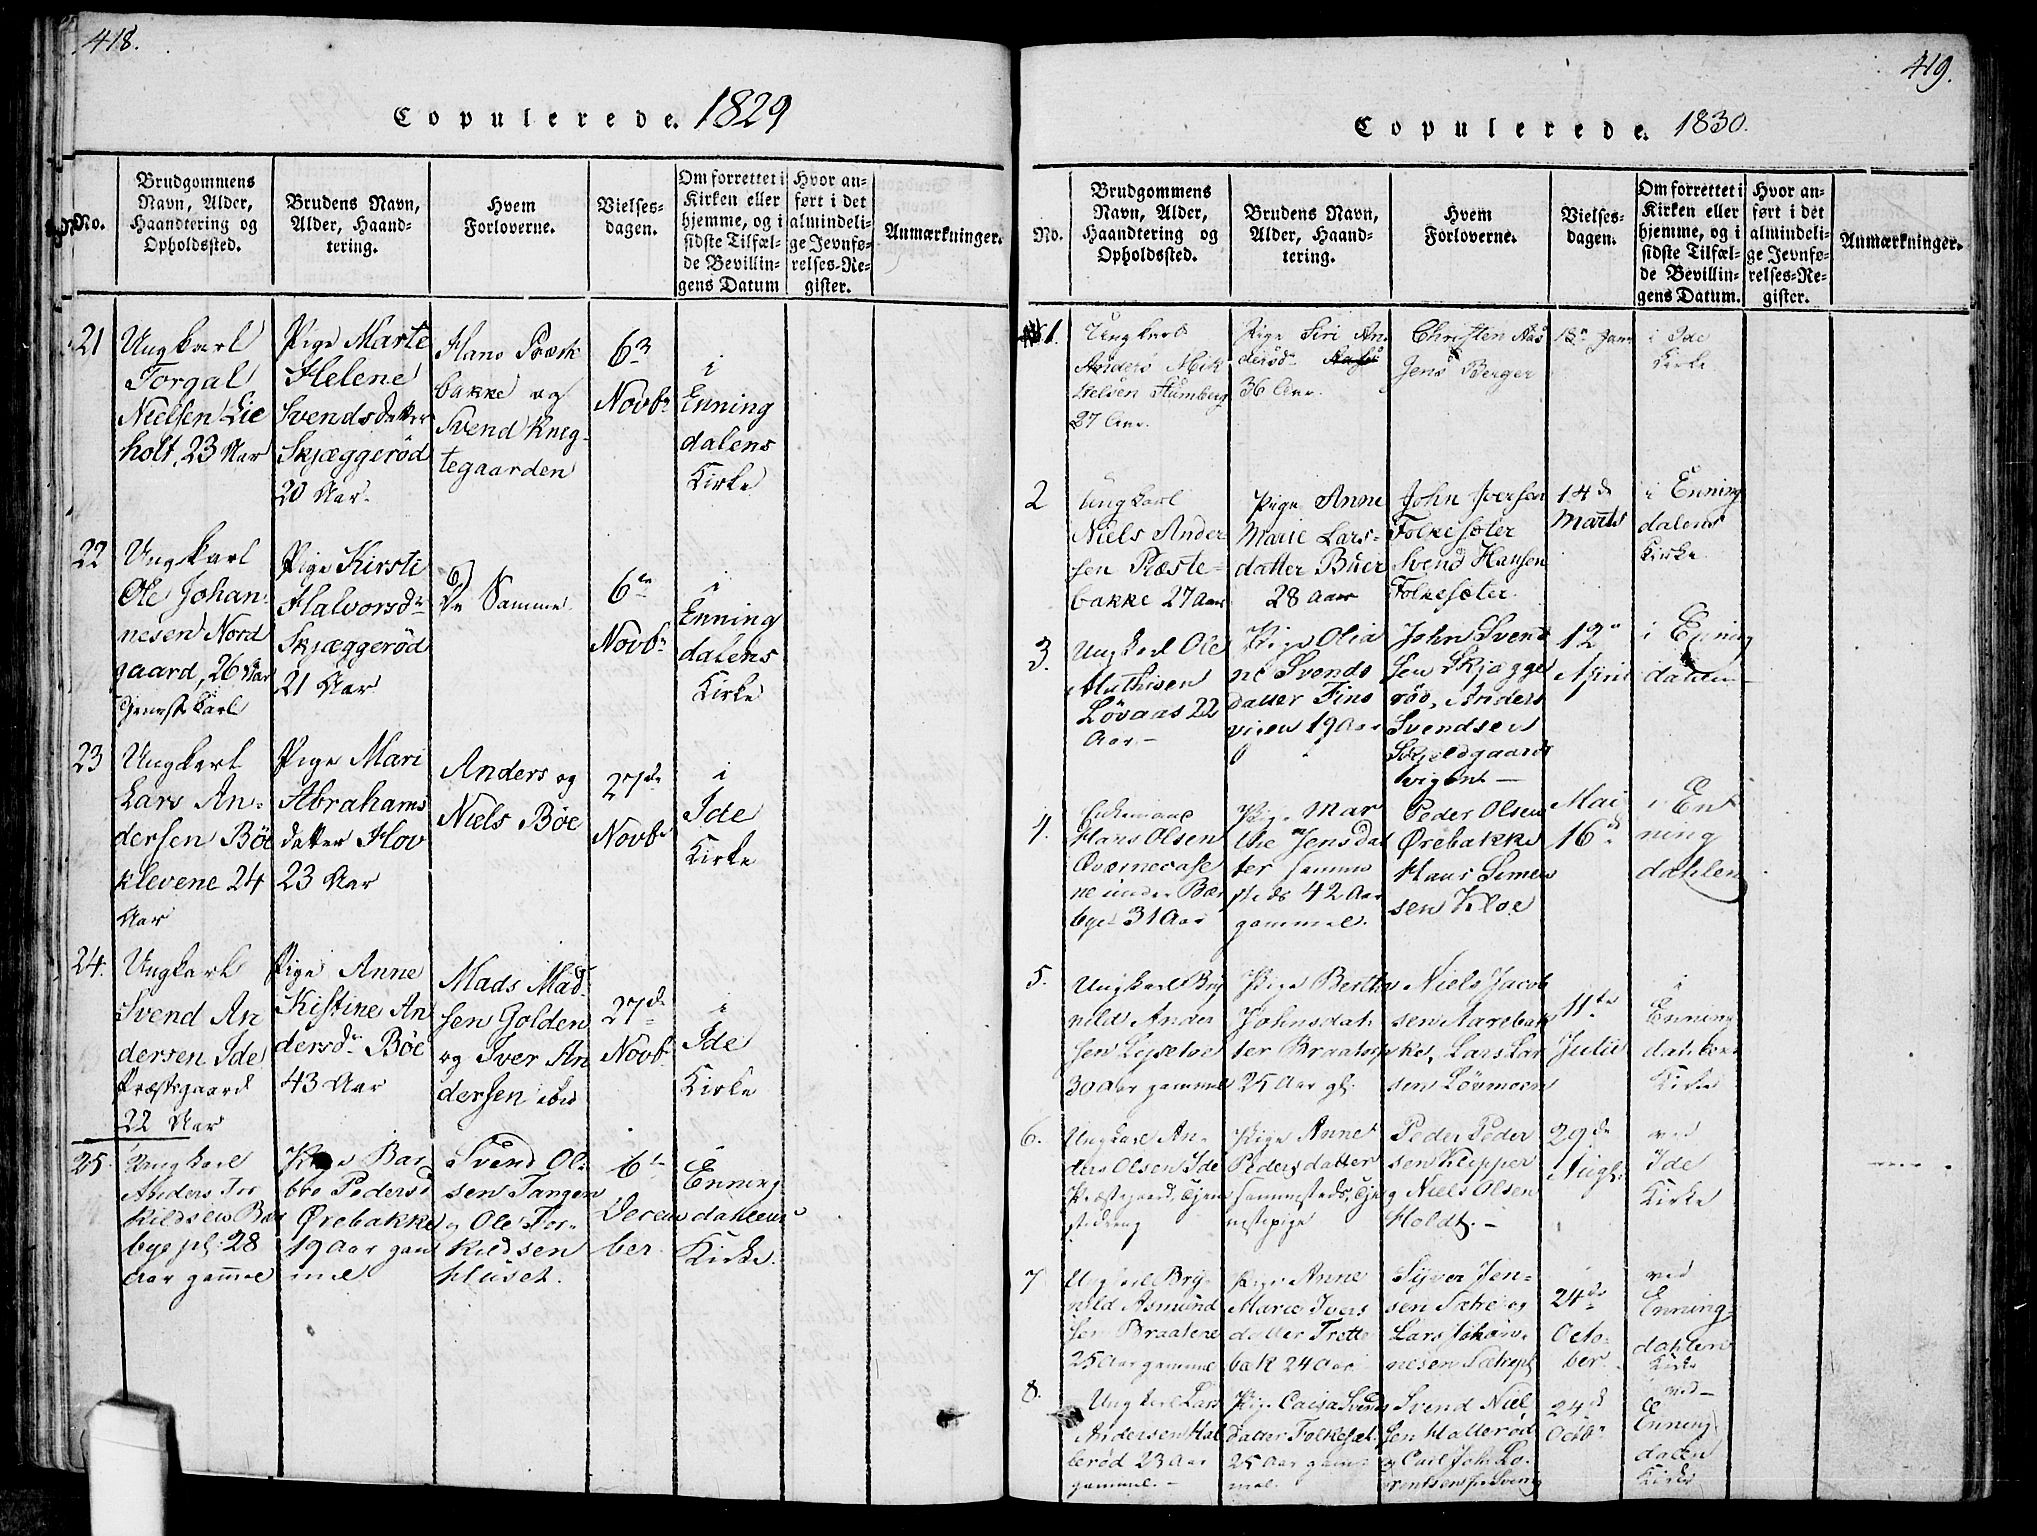 418.
Copulerede. 1829
No.
Brudgommens
Navn, Alder,
Haandtering og
Opholdssted.
Brudens Navn,
Alder, Haand-
tering.
Hvem
Forloverne.
Vielses-
dagen.
Om forrettet i
Kirken eller
hjemme, og i
sidste Tilfæl-
de Bevillin-
gens Datum
Hvor an-
ført i det
almindeli-
ge Jevnfø-
relses-Re-
gister.
Anmærkninger.
21
Ungkarl
Torgal
Nielsen Lie
holt, 23 Aar
Pige Marte
Helene
Svendsdatter
Skjæggerød
20 Aar.
Hans Præst
bakke og
Svend Kneg-
tegaarden
6
Novbr
i
Enning
dalens
Kirke
22
Ungkarl
Ole Johan
nesen Nord
gaard, 26 Aar
Tjeneste Karl
Pige Kirsti
Halvorsdr
Skjæggerød
21 Aar
De Samme
6te
Novbr
i
Enning
dalens
Kirke
23
Ungkarl
Lars An-
dersen Böe
klevene 24
Aar
Pige Mari
Abrahams
datter Hov
23 Aar
Anders og
Niels Böe
27de
Novbr
i
Ide
Kirke
24.
Ungkarl
Svend An
dersen Ide
Præstegaard
22 Aar
Pige Anne
Kistine An
dersdr Böe
43 Aar
Mads Mad-
sen Golden
og Iver An
dersen ibid
27de
Novbr
i
Ide
Kirke
25.
Ungkarl
Anders Tor
kildsen Bær
bye pl: 28
Aar gamme
Pige Bar
bro Pedersd
Ørebakke
19 Aar gam
mel
Svend Ol-
sen Tangen
og Ole Tor-
kildsen
Huset.
6te
Decem
ber
i
Enning
dahlens
Kirke.
419.
Copulerede. 1830.
No.
Brudgommens
Navn, Alder,
Haandtering og
Opholdssted.
Brudens Navn,
Alder, Haand-
tering.
Hvem
Forloverne.
Vielses-
dagen.
Om forrettet i
Kirken eller
hjemme, og i
sidste Tilfæl-
de Bevillin-
gens Datum.
Hvor an-
ført i det
almindeli-
ge Jevnfø-
relses-Re-
gister.
Anmærkninger.
1.
Ungkarl
Anders Mik
kelsen
27 Aar.
Pige Siri An
dersdr
36 Aar.
Christen Aas
Jens Berger
Janr
i Ide
Kirke
2
Ungkarl
Niels Ander
sen Præste-
bakke 27 Aar
Pige Anne
Marie Lars-
datter Buer
28 Aar
John Iversen
Folkesæter
Svend Hansen
Folkesæter.
14de
Marts
i Enning
dalens
Kirke.
3.
Ungkarl Ole
Mathisen
Lövaas 22
Aar. -
Pige Olia
ne Svends
datter Fins
vigen 19 Aar
John Svend
sen Skjægge
röd, Anders
Svendsen
Skjeldgaards
vigens -
12te
April
i Enning
dahlen
4.
Enkemand
Hans Olsen
Qværnecase
ne under Bær
bye 31 Aar
Pige Mar
the Jensdat
ter samme
steds 42 Aar
gammel.
Peder Olsen
Ørebakke
Hans Simen
sen Kloe
Mai
16de
i En
ning
dahlen
5.
Ungkarl Bry
nild Ander
sen
30 Aar gammel
Pige Berthe
Johnsdat
ter Braatep
25 Aar gl:
Niels Jacob
sen Aarebak
ke, Lars Lar
sen Lövmoen
11te
Julii
i
Enning
dahlens
Kirke
6.
Ungkarl An-
ders Olsen Ide
Præstegaard, Tjen
stedreng
Pige Anne
Pedersdatter
sammesteds, Tje
nestepige
Peder Peder
sen Klepper
og Niels Olsen
Holdt. -
29de
Augst:
ved
Ide
Kirke
7
Ungkarl Bry-
nild Asmund
sen Braatene
25 Aar gammel
Pige Anne
Marie Ivers
datter Trotte
bak 24 Aar
Syver Jen-
sen Sæthe og
Lars Johan-
nesen Sæthepl
24de
Octo-
ber
ved
Enning-
dahlen
Kirke
8.
Ungkarl Lars
Andersen Hal
leröd 23 Aar
gammel. -
Pige Caisa Svens
datter Folkesæt.
25 Aar gam
mel.
Svend Niel
sen Halleröd
og Carl Joh: Lo-
rentsen fra Sverig
24de
Octbr
ved
Enning-
dalen
Kirke